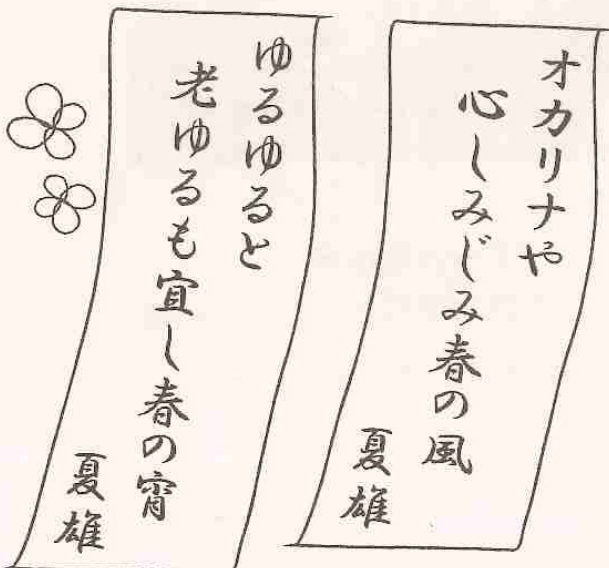 オカリナや
心しみじみ春の風
夏雄
ゆるゆると
老ゆるも宜し春の宵
夏雄